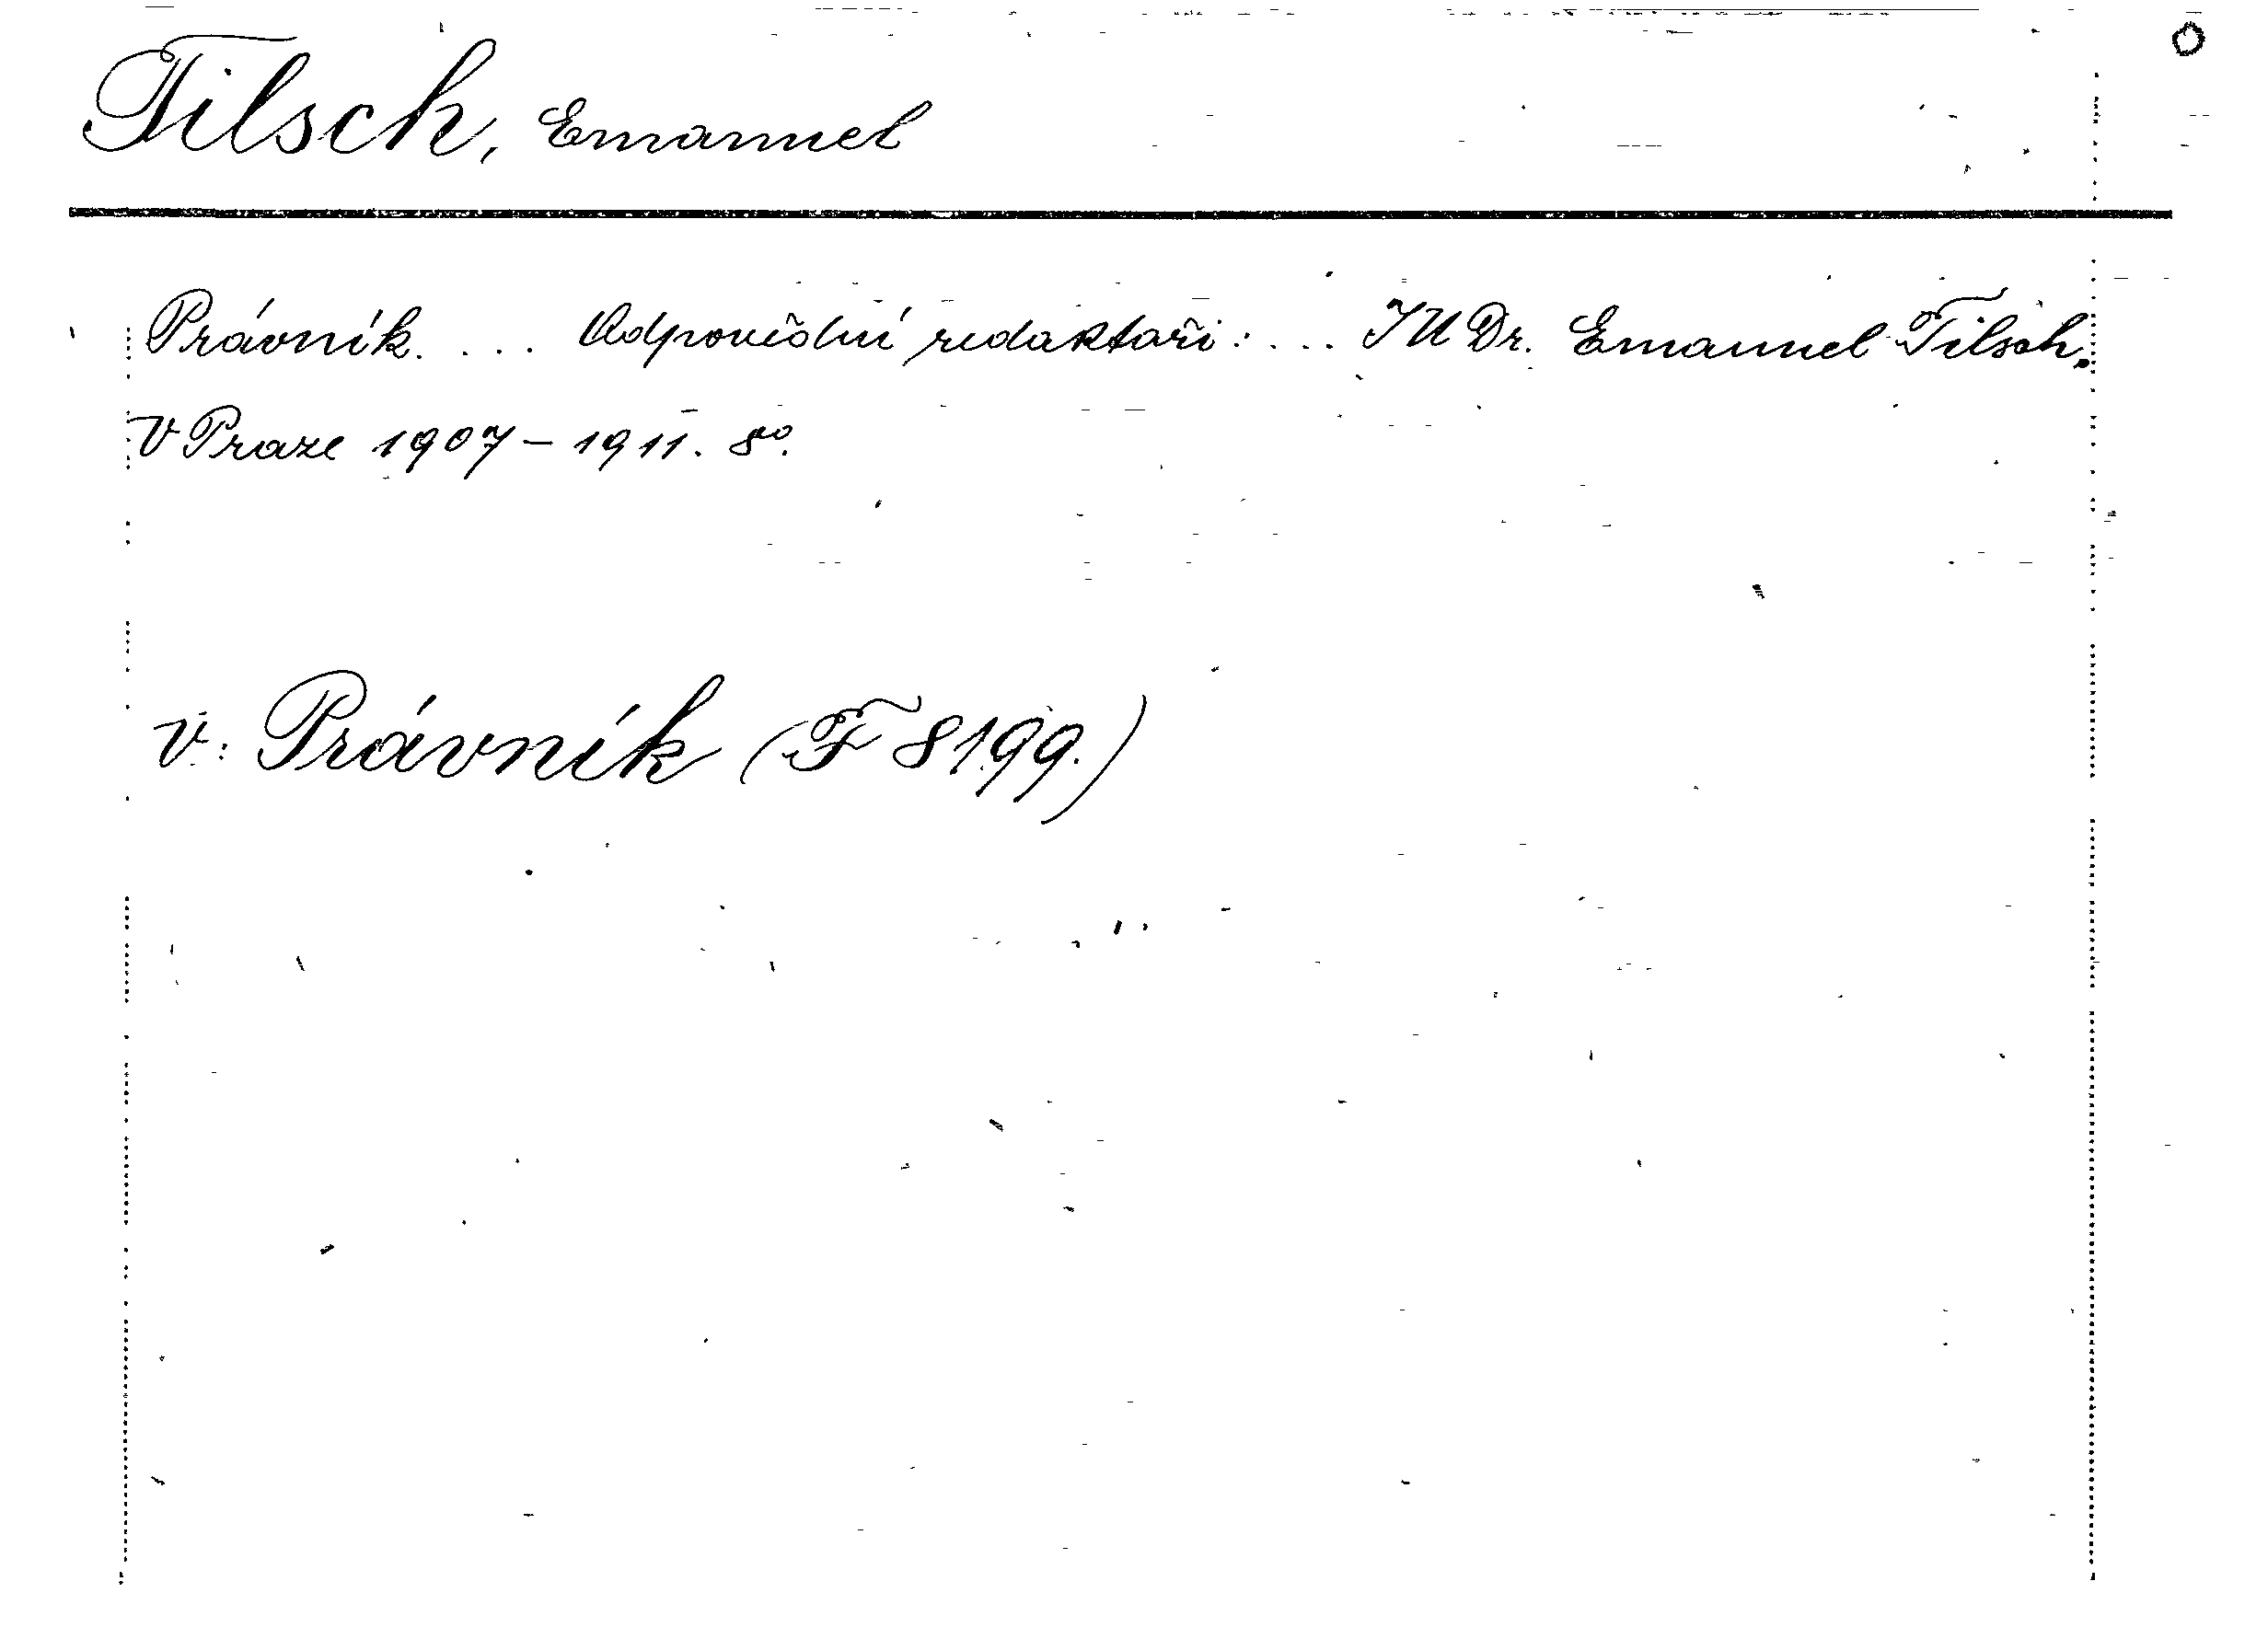 Tilsch, Emanuel
Právník. ... Odpovědní redaktoři: ... JUDr. Emanuel Tilsch.
V Praze 1907-1911. 8°.
v: Právník (F 8199.)